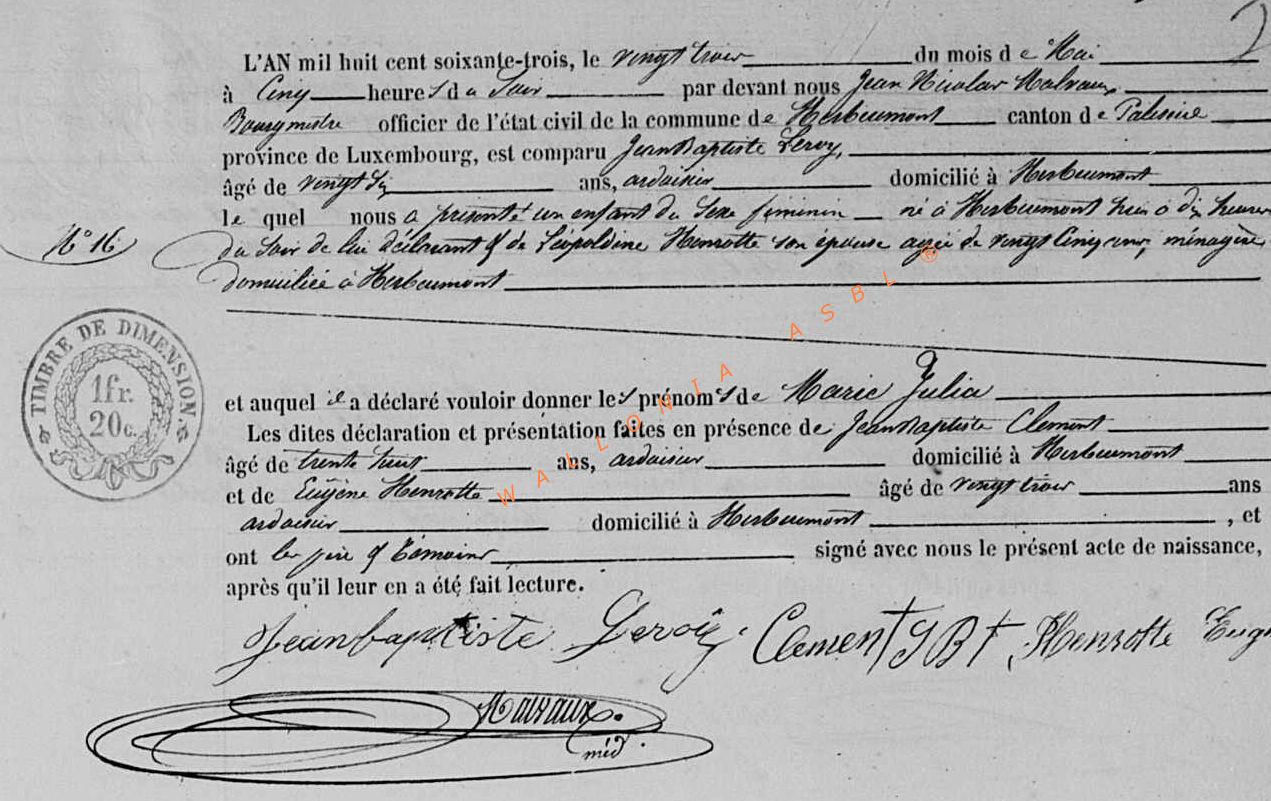 L'AN mil huit cent soixante-trois, le vingt trois du mois de Mai
à Cinq heures du Soir par devant nous Jean Nicolas Malvaux
Bourgmestre officier de l'état civil de la commune de Herbeumont canton de Paliseul
province de Luxembourg, est comparu Jean Baptiste Leroy,
âgé de vingt ans, ardoisier domicilié à Herbeumont
le quel nous a présenté un enfant du Sexe féminin né à Herbeumont hier à dix heures
N° 16
du Soir de lui déclarant & de Léopoldine Henrotte son épouse agée de vingt Cinq ans, ménagère
domiciliée à Herbeumont
TIMBRE DE DIMENSION.
1fr.
20c.
et auquel il a déclaré vouloir donner les prénoms de Marie Julia
Les dites déclaration et présentation faites en présence de Jean Baptiste Clement
âgé de trente ans, ardoisier domicilié à Herbeumont
et de Eugène Henrotte âgé de vingt trois ans
ardoisier domicilié à Herbeumont , et
ont les père & témoins signé avec nous le présent acte de naissance,
après qu'il leur en a été fait lecture.
Jeanbaptiste Leroiy. Clement JBt, Henrotte Eug
Malvaux.
méd.
WALLONIA ASBL ®